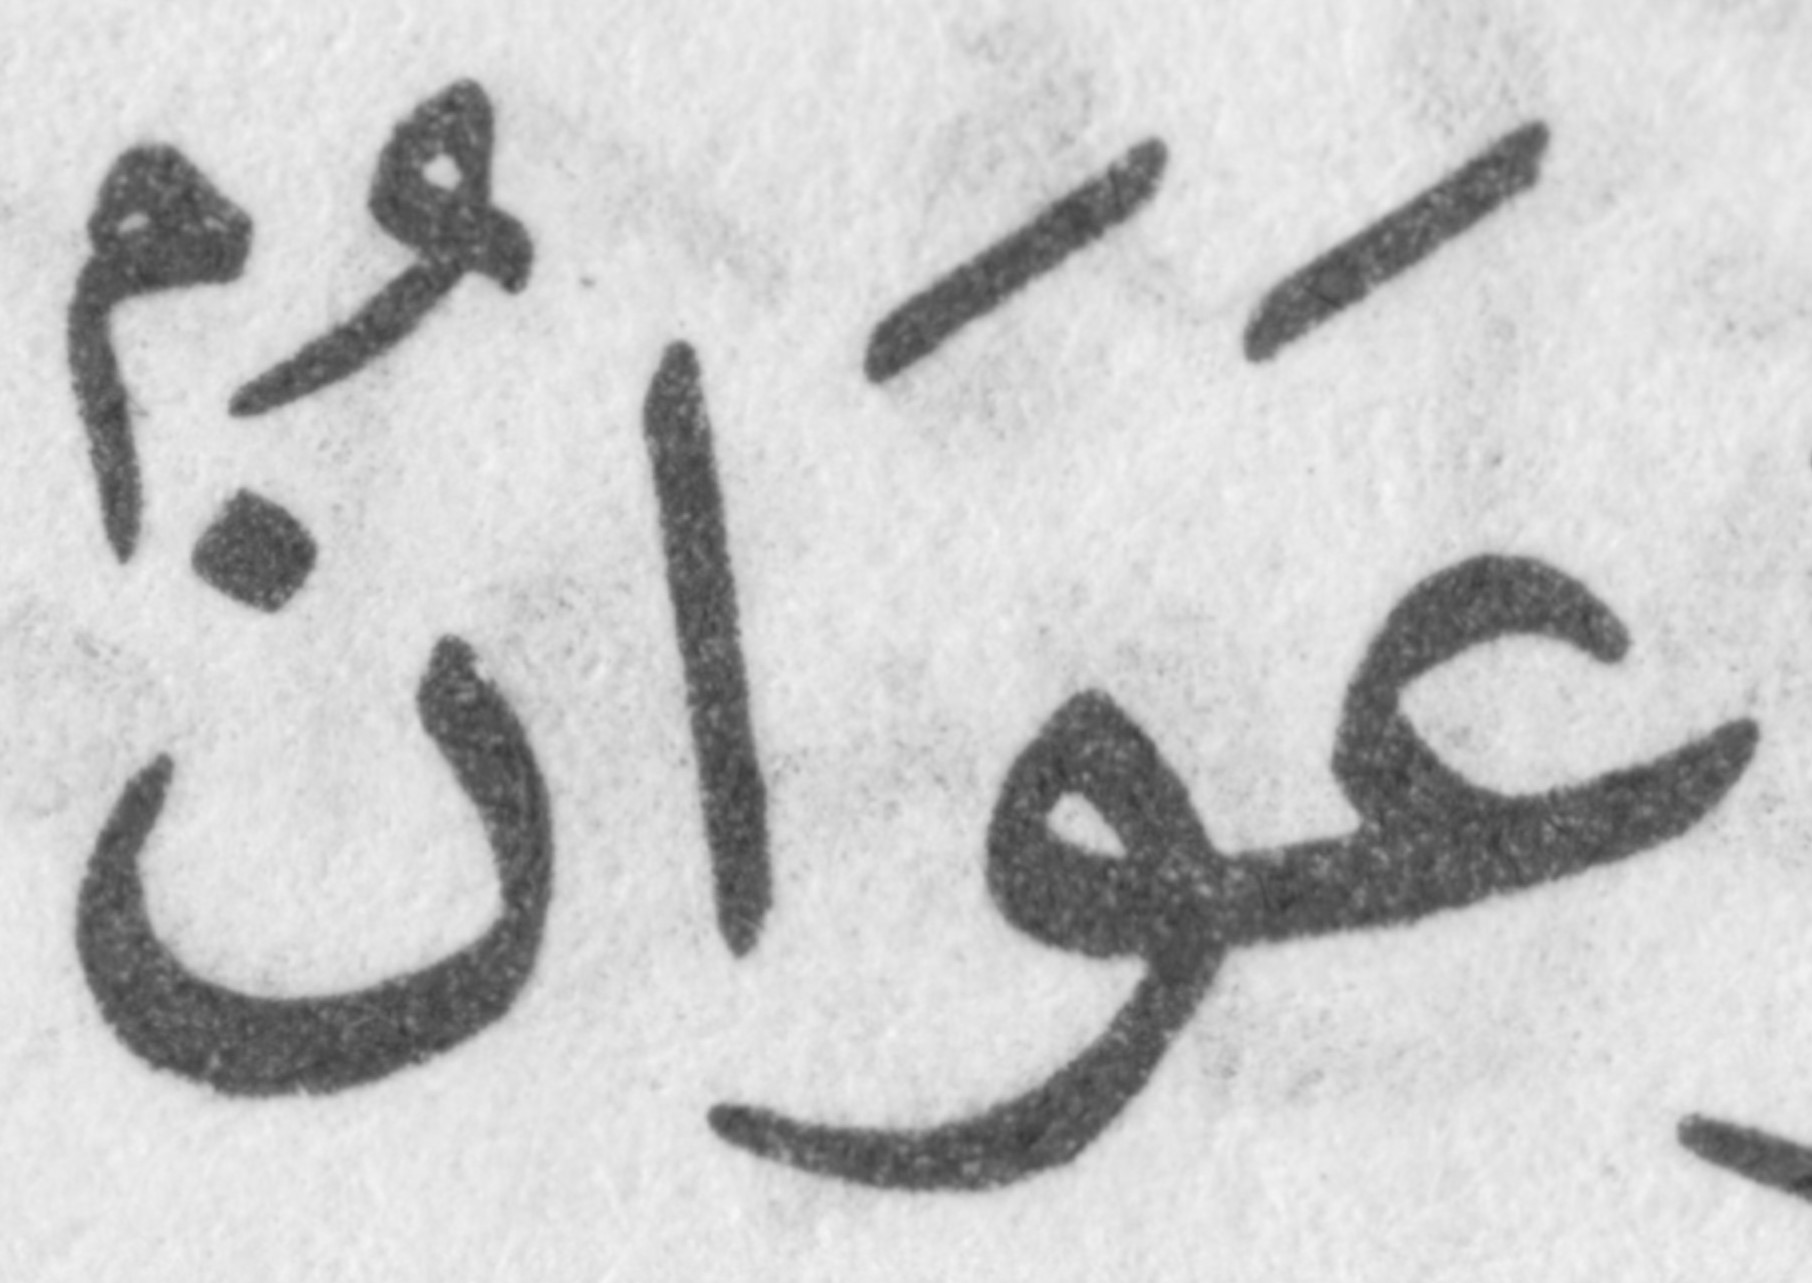 عَوَانٌۢ